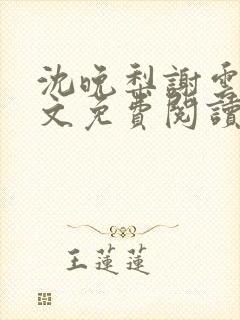 沈晚梨謝雲
文免費閱讀
王蓮蓮